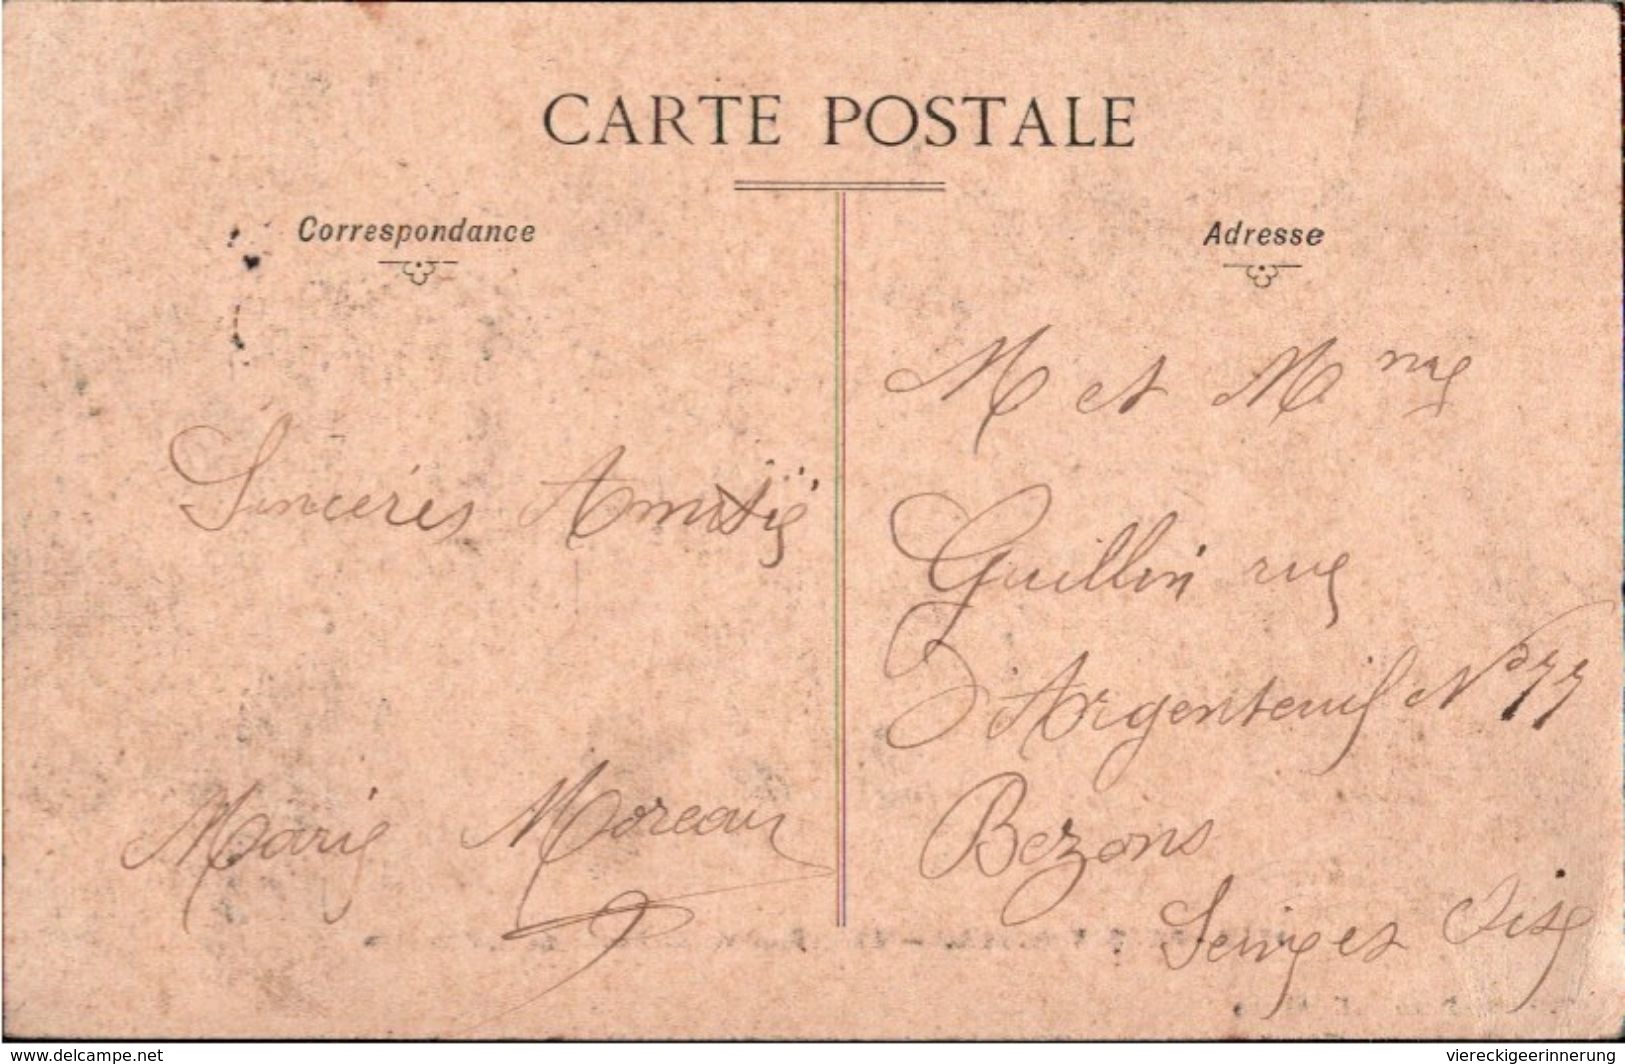 CARTE POSTALE
Correspondance
Adresse
Sincères Amitiés
Marie Moreau
M et Mme
Guillin rue
D'Argenteuil No 77
Bezons
Seine et Oise
www.delcampe.net
viereckigeerinnerung